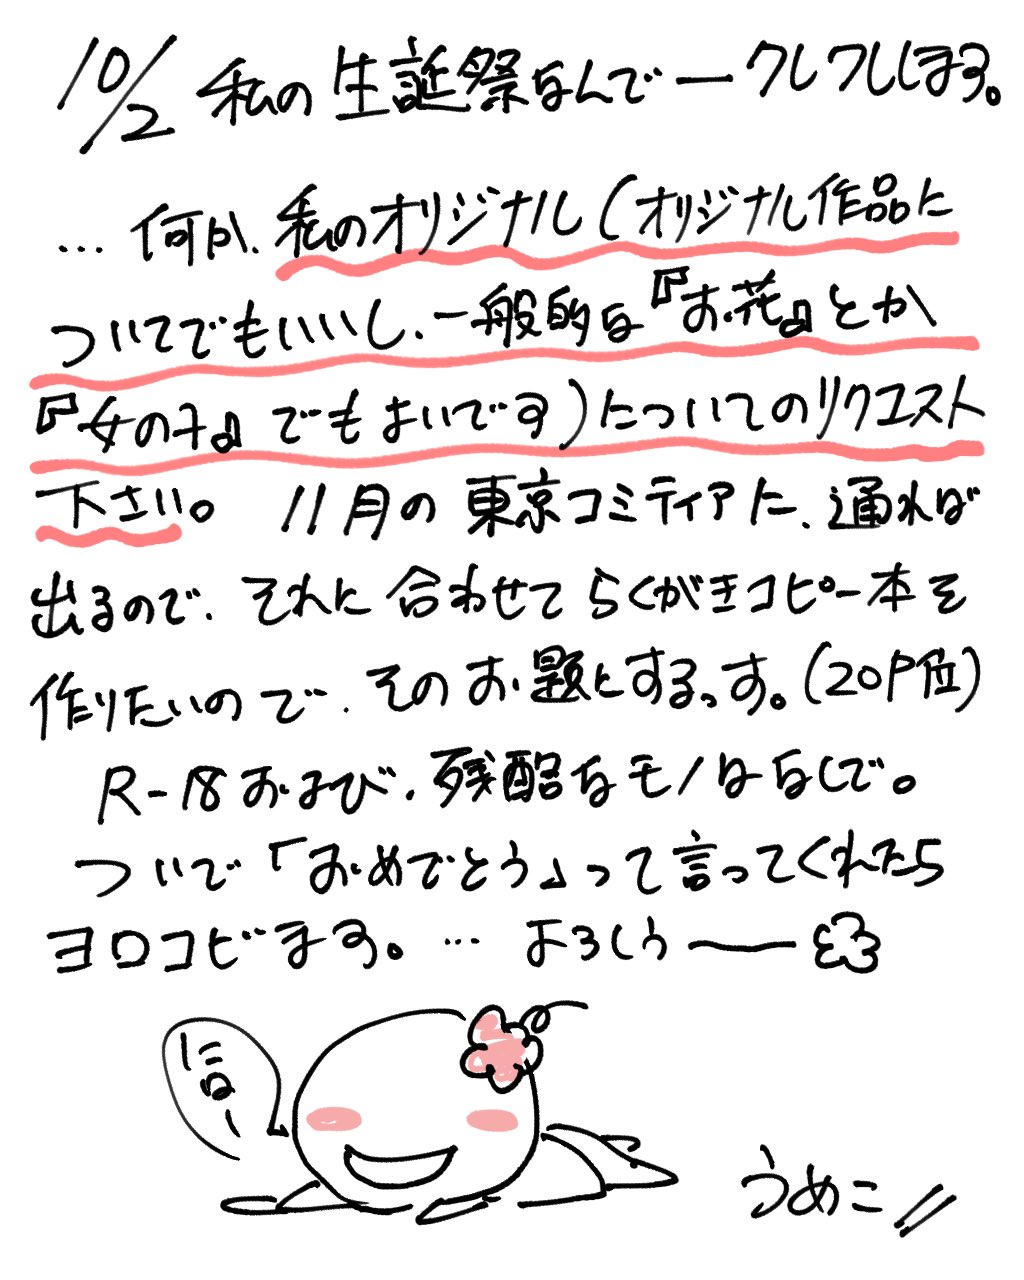 10/2 私の生誕祭なんでークレクレしまる。
…何か、私のオリジナル(オリジナル作品に
ついてでもいいし、一般的な『お花』とか
『女の子』でもよいです)についてのリクエスト
下さい。11月の東京コミティアに、通れば
出るので、それに合わせてらくがきコピー本を
作りたいので、そのお題とするっす。(20P位)
R-18および、残酷なモノはなしで。
ついで「おめでとう」って言ってくれたら
ヨロコビます。…よろしう〜
にはー
うめこ